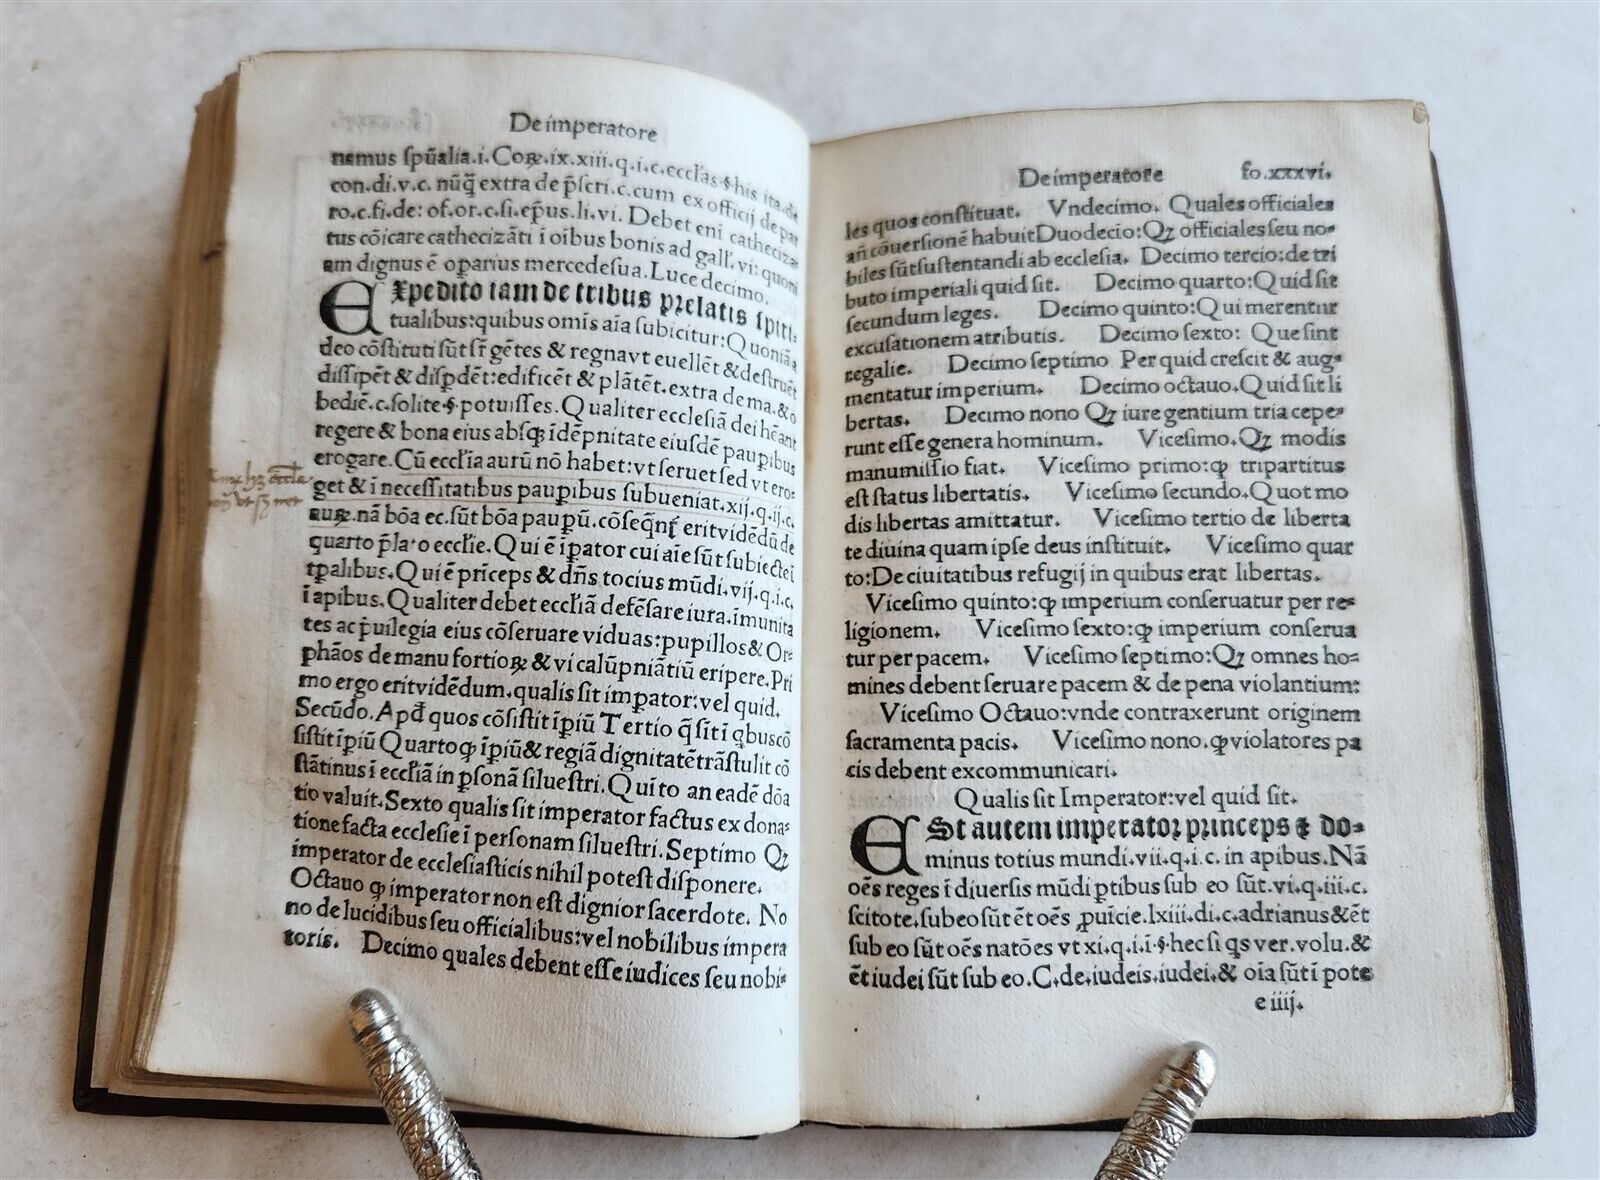 De imperatore
nemus spũalia.i.Coꝝ.ix.xiii.q.i.c.eccľas.§.his ita.de
con.di.v.c. nũq̃ extra de p̃scri.c.cum ex officij de par
ro.c.fi.de: of.or.c.si.ep̃us.li.vi. Debet eni cathecizas
tus cõicare cathecizãti ĩ oĩbus bonis ad gall'.vi: quoni
am dignus ẽ oꝑarius mercede sua. Luce decimo.
EXpedito iam de tribus prelatis spiri-
tualibus: quibus omĩs aĩa subicitur: Quoniã a
deo cõstituti sũt sr̃ gẽtes & regna vt euellẽt & destruẽt
dissipẽt & dispdẽt: edificẽt & plãtẽt. extra de ma. & o
bediẽ.c.solite.§.potuisses. Qualiter ecclesiã dei hẽant
regere & bona eius absqꝫ ĩdẽpnitate eiusdẽ pauꝑibus
erogare. Cũ eccľia aurũ nõ habet: vt seruet sed vt ero-
get & ĩ necessitatibus pauꝑibus subueniat. xij.q.ij.c.
auꝝ. nã bõa ec. sũt bõa pauꝑũ. cõseq̃nť erit vidẽdũ de
quarto p̃lato eccľie. Qui ẽ ĩpator cui aĩe sũt subiecte ĩ
tꝑalibus. Qui ẽ prĩceps & dñs tocius mũdi. vij.q.i.c.
ĩ apibus. Qualiter debet eccľiã defẽsare iura. ĩmunita
tes ac p̃uilegia eius cõseruare viduas: pupillos & Or-
phãos de manu fortioꝝ & vi calũpniãtiũ eripere. Pri
mo ergo erit vidẽdum. qualis sit impator: vel quid.
Secũdo. Apđ quos cõsistit ĩpiũ Tertio q̃ sĩt ĩ qbus cõ
sistit ĩpiũ Quarto ꝙ ĩpiũ & regiã dignitatẽ trãstulit cõ
stãtinus ĩ eccľiã in ꝑsonã siluestri. Quĩto an eadẽ dõa
tio valuit. Sexto qualis sit imperator factus ex dona-
tione facta ecclesie ĩ personam siluestri. Septimo Qꝫ
imperator de ecclesiasticis nihil potest disponere.
Octauo ꝙ imperator non est dignior sacerdote. No
no de lucidibus seu officialibus: vel nobilibus impera
toris. Decimo quales debent esse iudices seu nobi-
De imperatore fo.xxxvi.
les quos constituat. Vndecimo. Quales officiales
añ cõuersionẽ habuit Duodecio: Qꝫ officiales seu no-
biles sũt sustentandi ab ecclesia. Decimo tercio: de tri
buto imperiali quid sit. Decimo quarto: Quid sit
secundum leges. Decimo quinto: Qui merentur
excusationem a tributis. Decimo sexto: Que sint
regalie. Decimo septimo Per quid crescit & aug-
mentatur imperium. Decimo octauo. Quid sit li
bertas. Decimo nono Qꝫ iure gentium tria cepe-
runt esse genera hominum. Vicesimo. Qꝫ modis
manumissio fiat. Vicesimo primo: ꝙ tripartitus
est status libertatis. Vicesimo secundo. Quot mo
dis libertas amittatur. Vicesimo tertio de liberta
te diuina quam ipse deus instituit. Vicesimo quar
to: De ciuitatibus refugij in quibus erat libertas.
Vicesimo quinto: ꝙ imperium conseruatur per re-
ligionem. Vicesimo sexto: ꝙ imperium conserua
tur per pacem. Vicesimo septimo: Qꝫ omnes ho-
mines debent seruare pacem & de pena violantium:
Vicesimo Octauo: vnde contraxerunt originem
sacramenta pacis. Vicesimo nono. ꝙ violatores pa
cis debent excommunicari.
Qualis sit Imperator: vel quid sit.
ESt autem imperator princeps & do-
minus totius mundi. vii.q.i.c. in apibus. Nã
oẽs reges ĩ diuersis mũdi ꝑtibus sub eo sũt. vi.q.iii.c.
scitote. sub eo sũt ẽt oẽs ꝓuĩcie. lxiii.di.c.adrianus & ẽt
sub eo sũt oẽs natões vt xi.q.i.ĩ.§.hec si qs ver. volu. &
ẽt iudei sũt sub eo. C. de. iudeis. iudei. & oĩa sũt ĩ pote
e iiij.